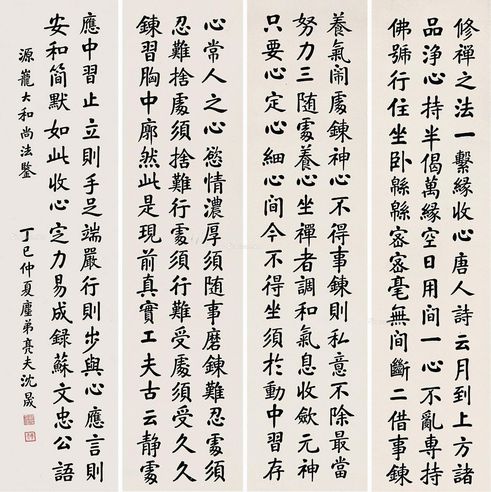 修禪之法一繫緣收心唐人詩云月到上方諸
品淨心持半偈萬緣空日用間一心不亂專持
佛號行住坐卧緜緜宻宻毫無間斷二借事鍊
養氣鬧處鍊神心不得事鍊則私意不除最當
努力三隨處養心坐禪者調和氣息收歛元神
只要心定心細心間今不得坐須於動中習存
心常人之心慾情濃厚須隨事磨鍊難忍處須
忍難捨處須捨難行處須行難受處須受久久
鍊習胸中廓然此是現前真實工夫古云靜處
應中習止立則手足端嚴行則步與心應言則
安和簡默如此收心定力易成録蘇文忠公語
源龍大和尚法鑒
丁巳仲夏塵弟亮夫沈晟